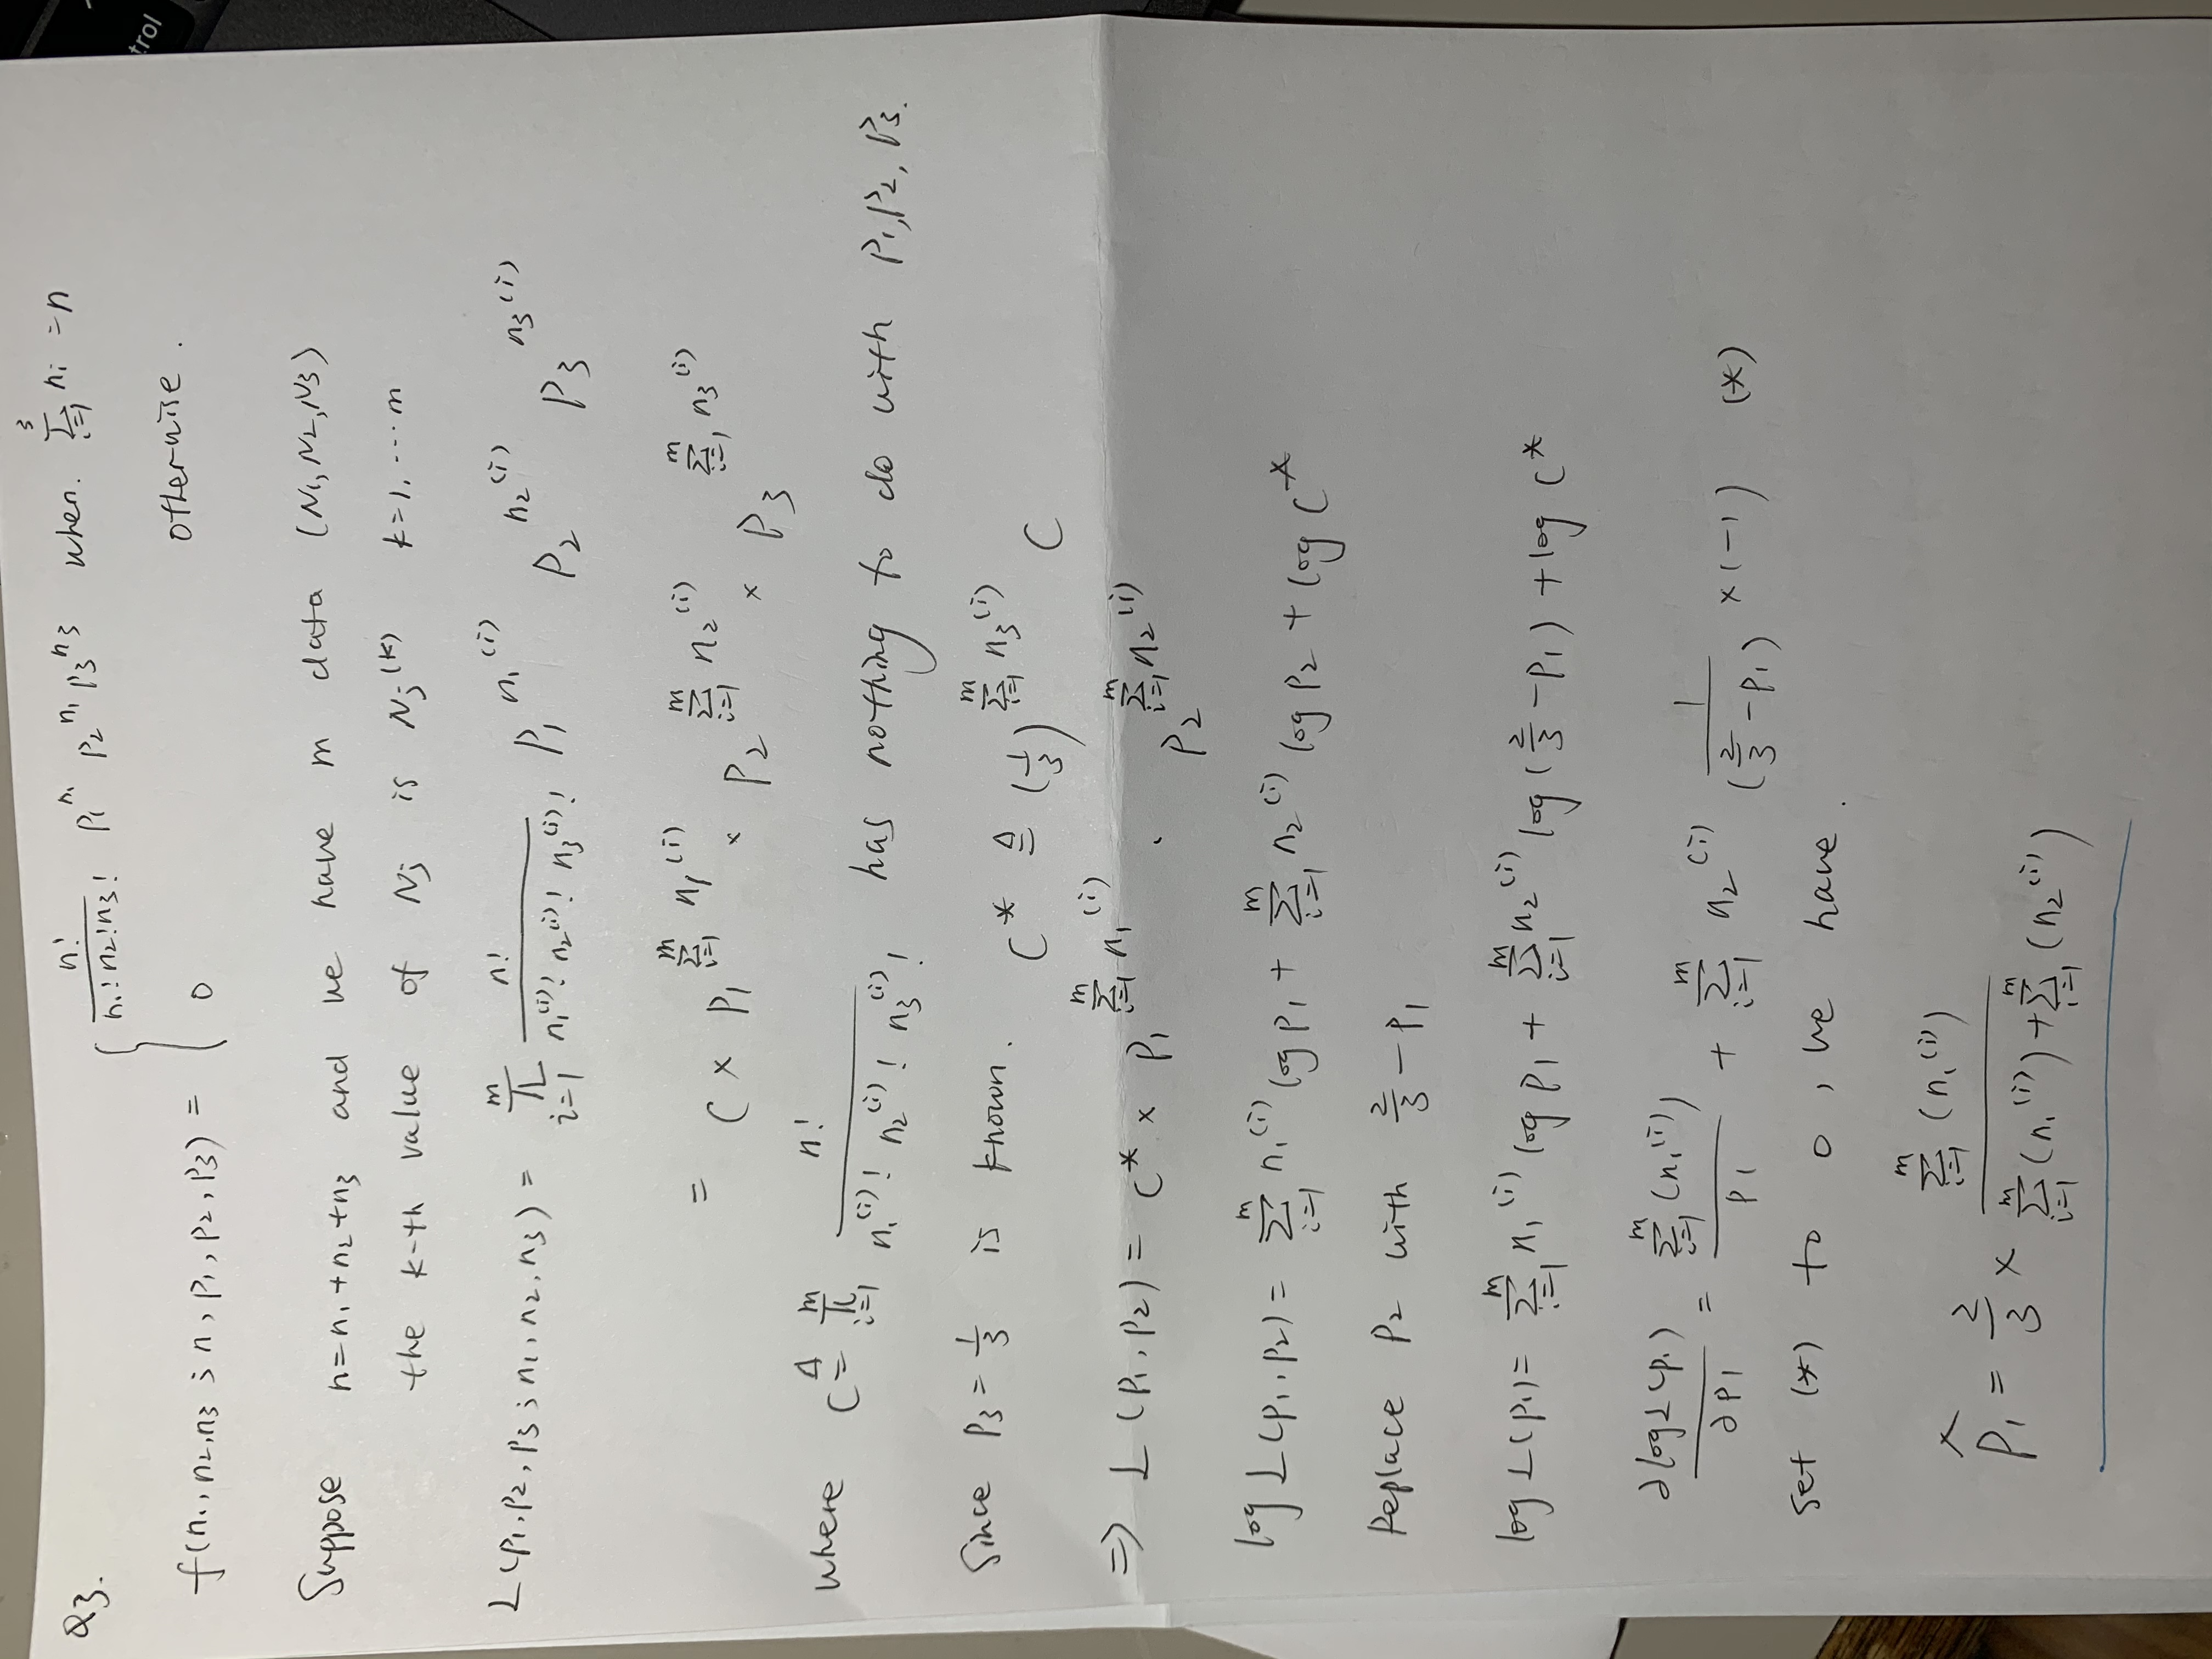 trol
Q3.
f(n₁,n₂,n₃; n, p₁, p₂, p₃) = { n!/(n₁!n₂!n₃!) p₁ⁿ¹ p₂ⁿ¹ p₃ⁿ³ when. Σ_{i=1}^{3} nᵢ = n
0 otherwise.
Suppose n=n₁+n₂+n₃ and we have m data (N₁,N₂,N₃)
the k-th value of Nj is Nj^(k) k=1,...m
L(p₁,p₂,p₃; n₁,n₂,n₃) = Π_{i=1}^{m} n!/(n₁^(i)! n₂^(i)! n₃^(i)!) P₁^{n₁^(i)} P₂^{n₂^(i)} P₃^{n₃^(i)}
= C × P₁^{Σ_{i=1}^{m} n₁^(i)} × P₂^{Σ_{i=1}^{m} n₂^(i)} × P₃^{Σ_{i=1}^{m} n₃^(i)}
where C ≜ Π_{i=1}^{m} n!/(n₁^(i)! n₂^(i)! n₃^(i)!) has nothing to do with P₁,P₂,P₃.
Since P₃ = 1/3 is known. C* ≜ (1/3)^{Σ_{i=1}^{m} n₃^(i)} C
⇒ L(P₁,P₂) = C* × P₁^{Σ_{i=1}^{m} n₁^(i)} · P₂^{Σ_{i=1}^{m} n₂^(i)}
log L(p₁,p₂) = Σ_{i=1}^{m} n₁^(i) log p₁ + Σ_{i=1}^{m} n₂^(i) log p₂ + log C*
Replace P₂ with 2/3 − P₁
log L(p₁) = Σ_{i=1}^{m} n₁^(i) log p₁ + Σ_{i=1}^{m} n₂^(i) log(2/3 − p₁) + log C*
∂ log L(p₁)/∂p₁ = Σ_{i=1}^{m} (n₁^(i))/p₁ + Σ_{i=1}^{m} n₂^(i) 1/(2/3 − p₁) × (−1) (*)
Set (*) to 0, we have.
p̂₁ = 2/3 × Σ_{i=1}^{m} (n₁^(i)) / (Σ_{i=1}^{m} (n₁^(i)) + Σ_{i=1}^{m} (n₂^(i)))